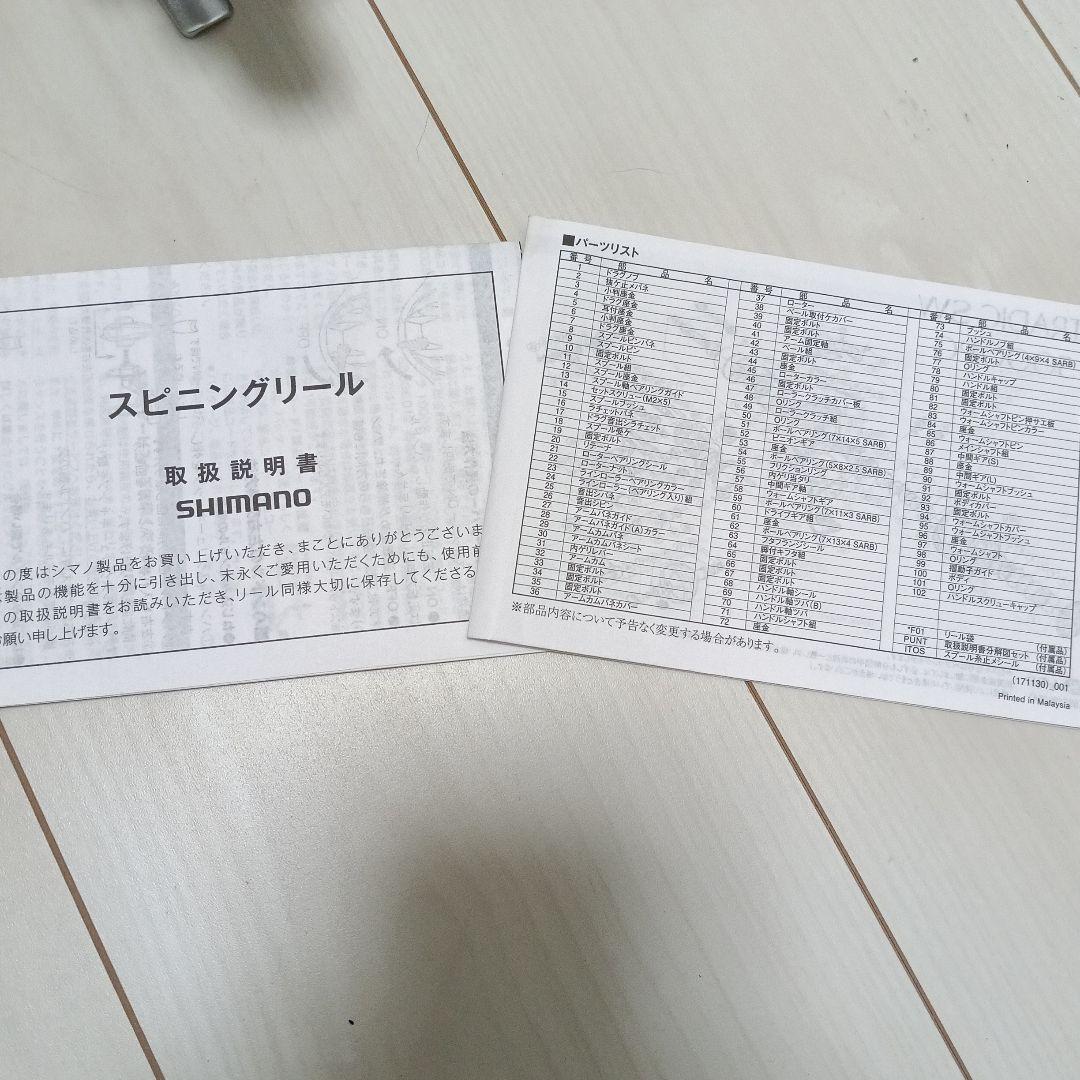 スピニングリール
取扱説明書
SHIMANO
の度はシマノ製品をお買い上げいただき、まことにありがとうございま
製品の機能を十分に引き出し、末永くご愛用いただくためにも、使用前
の取扱説明書をお読みいただき、リール同様大切に保存してくださる
お願い申し上げます。
■パーツリスト
番号 部品名
1 ドラグノブ
2 抜ケ止メバネ
3 小判座金
4 ドラグ座金
5 耳付座金
6 小判座金
7 ドラグ座金
8 スプールピンバネ
9 スプールピン
10 固定ボルト
11 スプール組
12 スプール座金
13 スプール軸ベアリングガイド
14 セットスクリュー(M2×5)
15 スプールブッシュ
16 ラチェットバネ
17 ドラグ音出シラチェット
18 スプール受ケ
19 固定ボルト
20 リテーナ
21 ローターベアリングシール
22 ローターナット
23 ラインローラーベアリングカラー
24 ラインローラー(ベアリング入り)組
25 音出シバネ
26 音出シピン
27 アームバネガイド
28 アームバネガイド(A)カラー
29 アームカムバネ
30 アームカムバネシート
31 内ゲリレバー
32 アームカム
33 固定ボルト
34 固定ボルト
35 固定ボルト
36 アームカムバネカバー
番号 部品名
37 ローター
38 ベール取付ケカバー
39 固定ボルト
40 固定ボルト
41 アーム固定軸
42 ベール組
43 固定ボルト
44 座金
45 ローターカラー
46 固定ボルト
47 ローラークラッチカバー板
48 Oリング
49 ローラークラッチ組
50 Oリング
51 ボールベアリング(7×14×5 SARB)
52 ピニオンギア
53 座金
54 ボールベアリング(5×8×2.5 SARB)
55 フリクションリング
56 内ゲリ当タリ
57 中間ギア軸
58 ウォームシャフトギア
59 ボールベアリング(7×11×3 SARB)
60 ドライブギア組
61 座金
62 ボールベアリング(7×13×4 SARB)
63 フタフランジシール
64 脚付キフタ組
65 固定ボルト
66 固定ボルト
67 ハンドル軸シール
68 ハンドル軸ツバ(B)
69 ハンドル軸ツバ
70 ハンドルシャフト組
71
72 座金
番号 部品名
73 ブッシュ
74 ハンドルノブ組
75 ボールベアリング(4×9×4 SARB)
76 固定ボルト
77 Oリング
78 ハンドルキャップ
79 ハンドル組
80 固定ボルト
81 固定ボルト
82 ウォームシャフトピン押サエ板
83 ウォームシャフトピンカラー
84 座金
85 ウォームシャフトピン
86 メインシャフト組
87 中間ギア(S)
88 座金
89 中間ギア(L)
90 ウォームシャフトブッシュ
91 固定ボルト
92 ボディカバー
93 固定ボルト
94 ウォームシャフトカバー
95 ウォームシャフトブッシュ
96 座金
97 ウォームシャフト
98 Oリング
99 摺動子ガイド
100 ボディ
101 Oリング
102 ハンドルスクリューキャップ
*F01 リール袋 (付属品)
PUNT 取扱説明書分解図セット (付属品)
ITOS スプール糸止メシール (付属品)
※部品内容について予告なく変更する場合があります。
(171130)_001
Printed in Malaysia